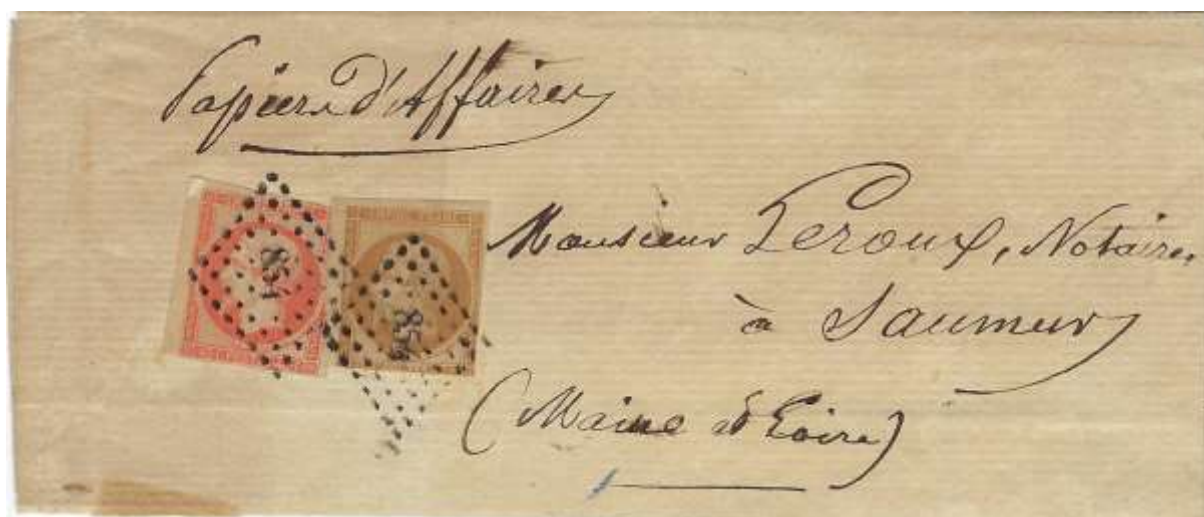 Papiers d'Affaires
Monsieur Leroux, Notaire
à Saumur
(Maine et Loire)